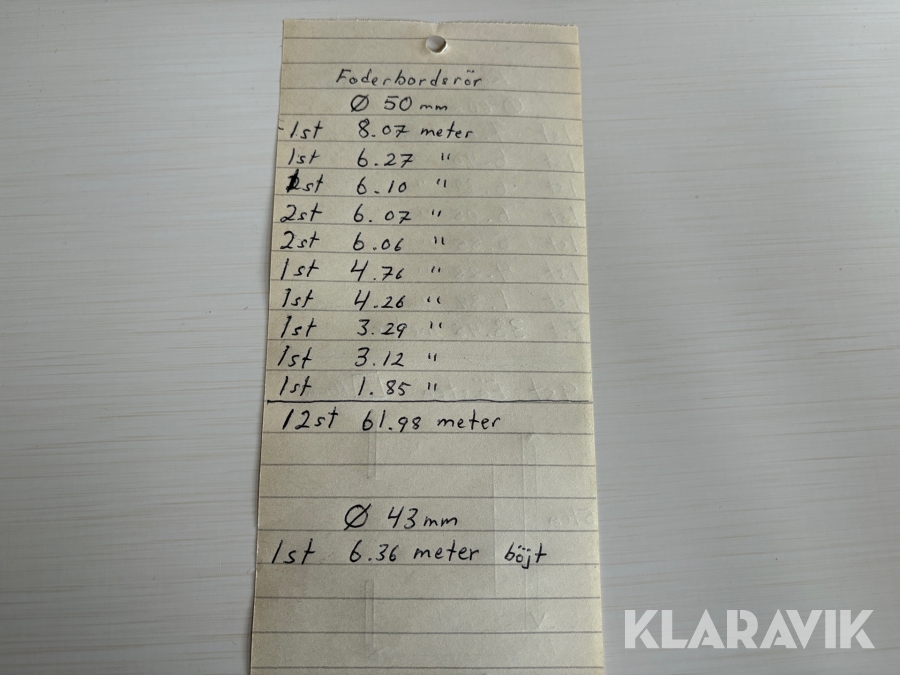 Foderbordsrör
Ø 50 mm
1st 8.07 meter
1st 6.27 "
1st 6.10 "
2st 6.07 "
2st 6.06 "
1st 4.76 "
1st 4.26 "
1st 3.29 "
1st 3.12 "
1st 1.85 "
12st 61.98 meter
Ø 43 mm
1st 6.36 meter böjt
KLARAVIK